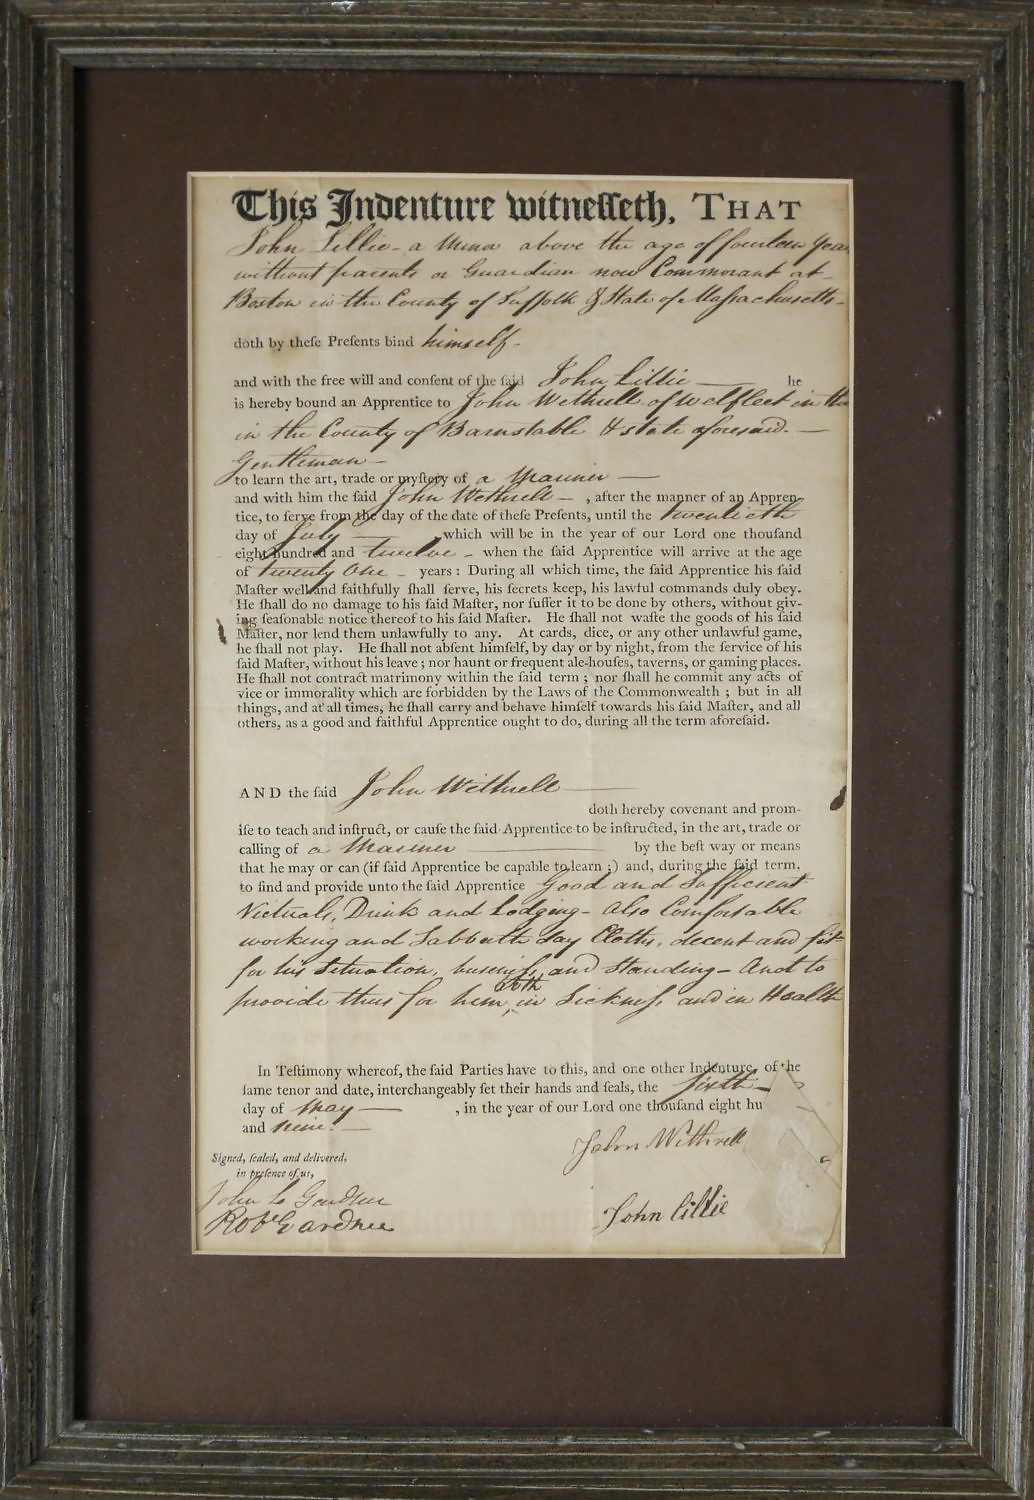 This Indenture witneſſeth, THAT
John Lillie - a Minor above the age of fourteen Year
without parents or Guardian now Commorant at -
Boston in the County of Suffolk & State of Maſsachusetts -
doth by theſe Preſents bind himself -
and with the free will and conſent of the ſaid John Lillie — he
is hereby bound an Apprentice to John Wethrell of welfleet in the
in the County of Barnstable & state aforesaid. —
Gentleman —
to learn the art, trade or myſtery of a Mariner —
and with him the ſaid John Wethrell — , after the manner of an Appren-
tice, to ſerve from the day of the date of theſe Preſents, until the twentieth
day of July — , which will be in the year of our Lord one thouſand
eight hundred and twelve - when the ſaid Apprentice will arrive at the age
of twenty One - years : During all which time, the ſaid Apprentice his ſaid
Maſter well and faithfully ſhall ſerve, his ſecrets keep, his lawful commands duly obey.
He ſhall do no damage to his ſaid Maſter, nor ſuffer it to be done by others, without giv-
ing ſeaſonable notice thereof to his ſaid Maſter. He ſhall not waſte the goods of his ſaid
Maſter, nor lend them unlawfully to any. At cards, dice, or any other unlawful game,
he ſhall not play. He ſhall not abſent himſelf, by day or by night, from the ſervice of his
ſaid Maſter, without his leave ; nor haunt or frequent ale-houſes, taverns, or gaming places.
He ſhall not contract matrimony within the ſaid term ; nor ſhall he commit any acts of
vice or immorality which are forbidden by the Laws of the Commonwealth ; but in all
things, and at all times, he ſhall carry and behave himſelf towards his ſaid Maſter, and all
others, as a good and faithful Apprentice ought to do, during all the term aforeſaid.
AND the ſaid John Wethrell —
doth hereby covenant and prom-
iſe to teach and inſtruct, or cauſe the ſaid Apprentice to be inſtructed, in the art, trade or
calling of a Mariner — by the beſt way or means
that he may or can (if ſaid Apprentice be capable to learn ;) and, during the ſaid term,
to find and provide unto the ſaid Apprentice Good and Sufficient
Victuals, Drink and Lodging - Also Comfortable
working and Sabbath day Cloths, decent and fit
for his Situation, busineſs, and Standing - And to
provide thus for him, both in Sickneſs, and in Health
In Teſtimony whereof, the ſaid Parties have to this, and one other Indenture, of the
ſame tenor and date, interchangeably ſet their hands and ſeals, the sixth -
day of May — , in the year of our Lord one thouſand eight hu
and nine. —
John Wethrell
Signed, ſealed, and delivered,
in preſence of us,
John Gardner
Robt Gardner
John Lillie